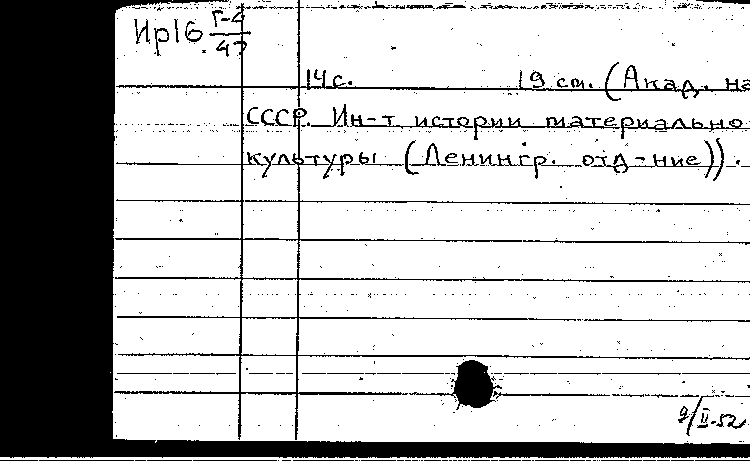 Ир16 Г-4
47
14 с. 19 см. (Акад. на
СССР. Ин-т истории материально
культуры (Ленингр. отд-ние)).
9/II-52